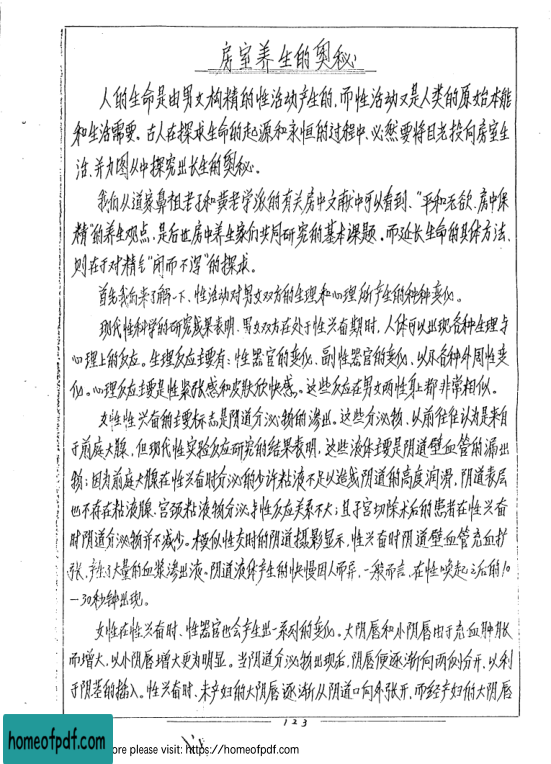 房室养生的奥秘
人的生命是由男女构精的性活动产生的,而性活动又是人类的原始本能
和生活需要。古人在探求生命的起源和永恒的过程中、必然要将目光投向房室生
活、并力图从中探究出长生的奥秘。
我们从道家鼻祖老子和黄老学派的有关房中文献中可以看到、“平和无欲、房中保
精”的养生观点、是后世房中养生家们共同研究的基本课题。而延长生命的具体方法、
则在于对精气“闭而不泻”的探求。
首先我们来了解一下、性活动对男女双方的生理和心理所产生的种种变化。
现代性科学的研究成果表明、男女双方在处于性兴奋期时、人体可以出现各种生理与
心理上的反应。生理反应主要有:性器官的变化、副性器官的变化、以及各种外周性变
化。心理反应主要是性紧张感和皮肤欣快感。这些反应在男女两性身上都非常相似。
女性性兴奋的主要标志是阴道分泌物的渗出。这些分泌物、以前往往认为是来自
于前庭大腺、但现代性实验反应研究的结果表明、这些液体主要是阴道壁血管的漏出
物;因为前庭大腺在性兴奋时分泌的少许粘液不足以造成阴道的高度润滑,阴道表层
也不存在粘液腺、宫颈粘液物分泌与性反应关系不大;且子宫切除术后的患者在性兴奋
时阴道分泌物并不减少。模似性交时的阴道摄影显示,性兴奋时阴道壁血管充血扩
张、产生了大量的血浆渗出液。阴道液体产生的快慢因人而异、一般而言、在性唤起之后的10
—30秒钟出现。
女性在性兴奋时、性器官也会产生出一系列的变化。大阴唇和小阴唇由于充血肿胀
而增大、以小阴唇增大更为明显。当阴道分泌物出现后、阴唇便逐渐向两侧分开、以利
于阴茎的插入。性兴奋时、未产妇的大阴唇逐渐从阴道口向外张开、而经产妇的大阴唇
123
homeofpdf.com
ore please visit: https://homeofpdf.com